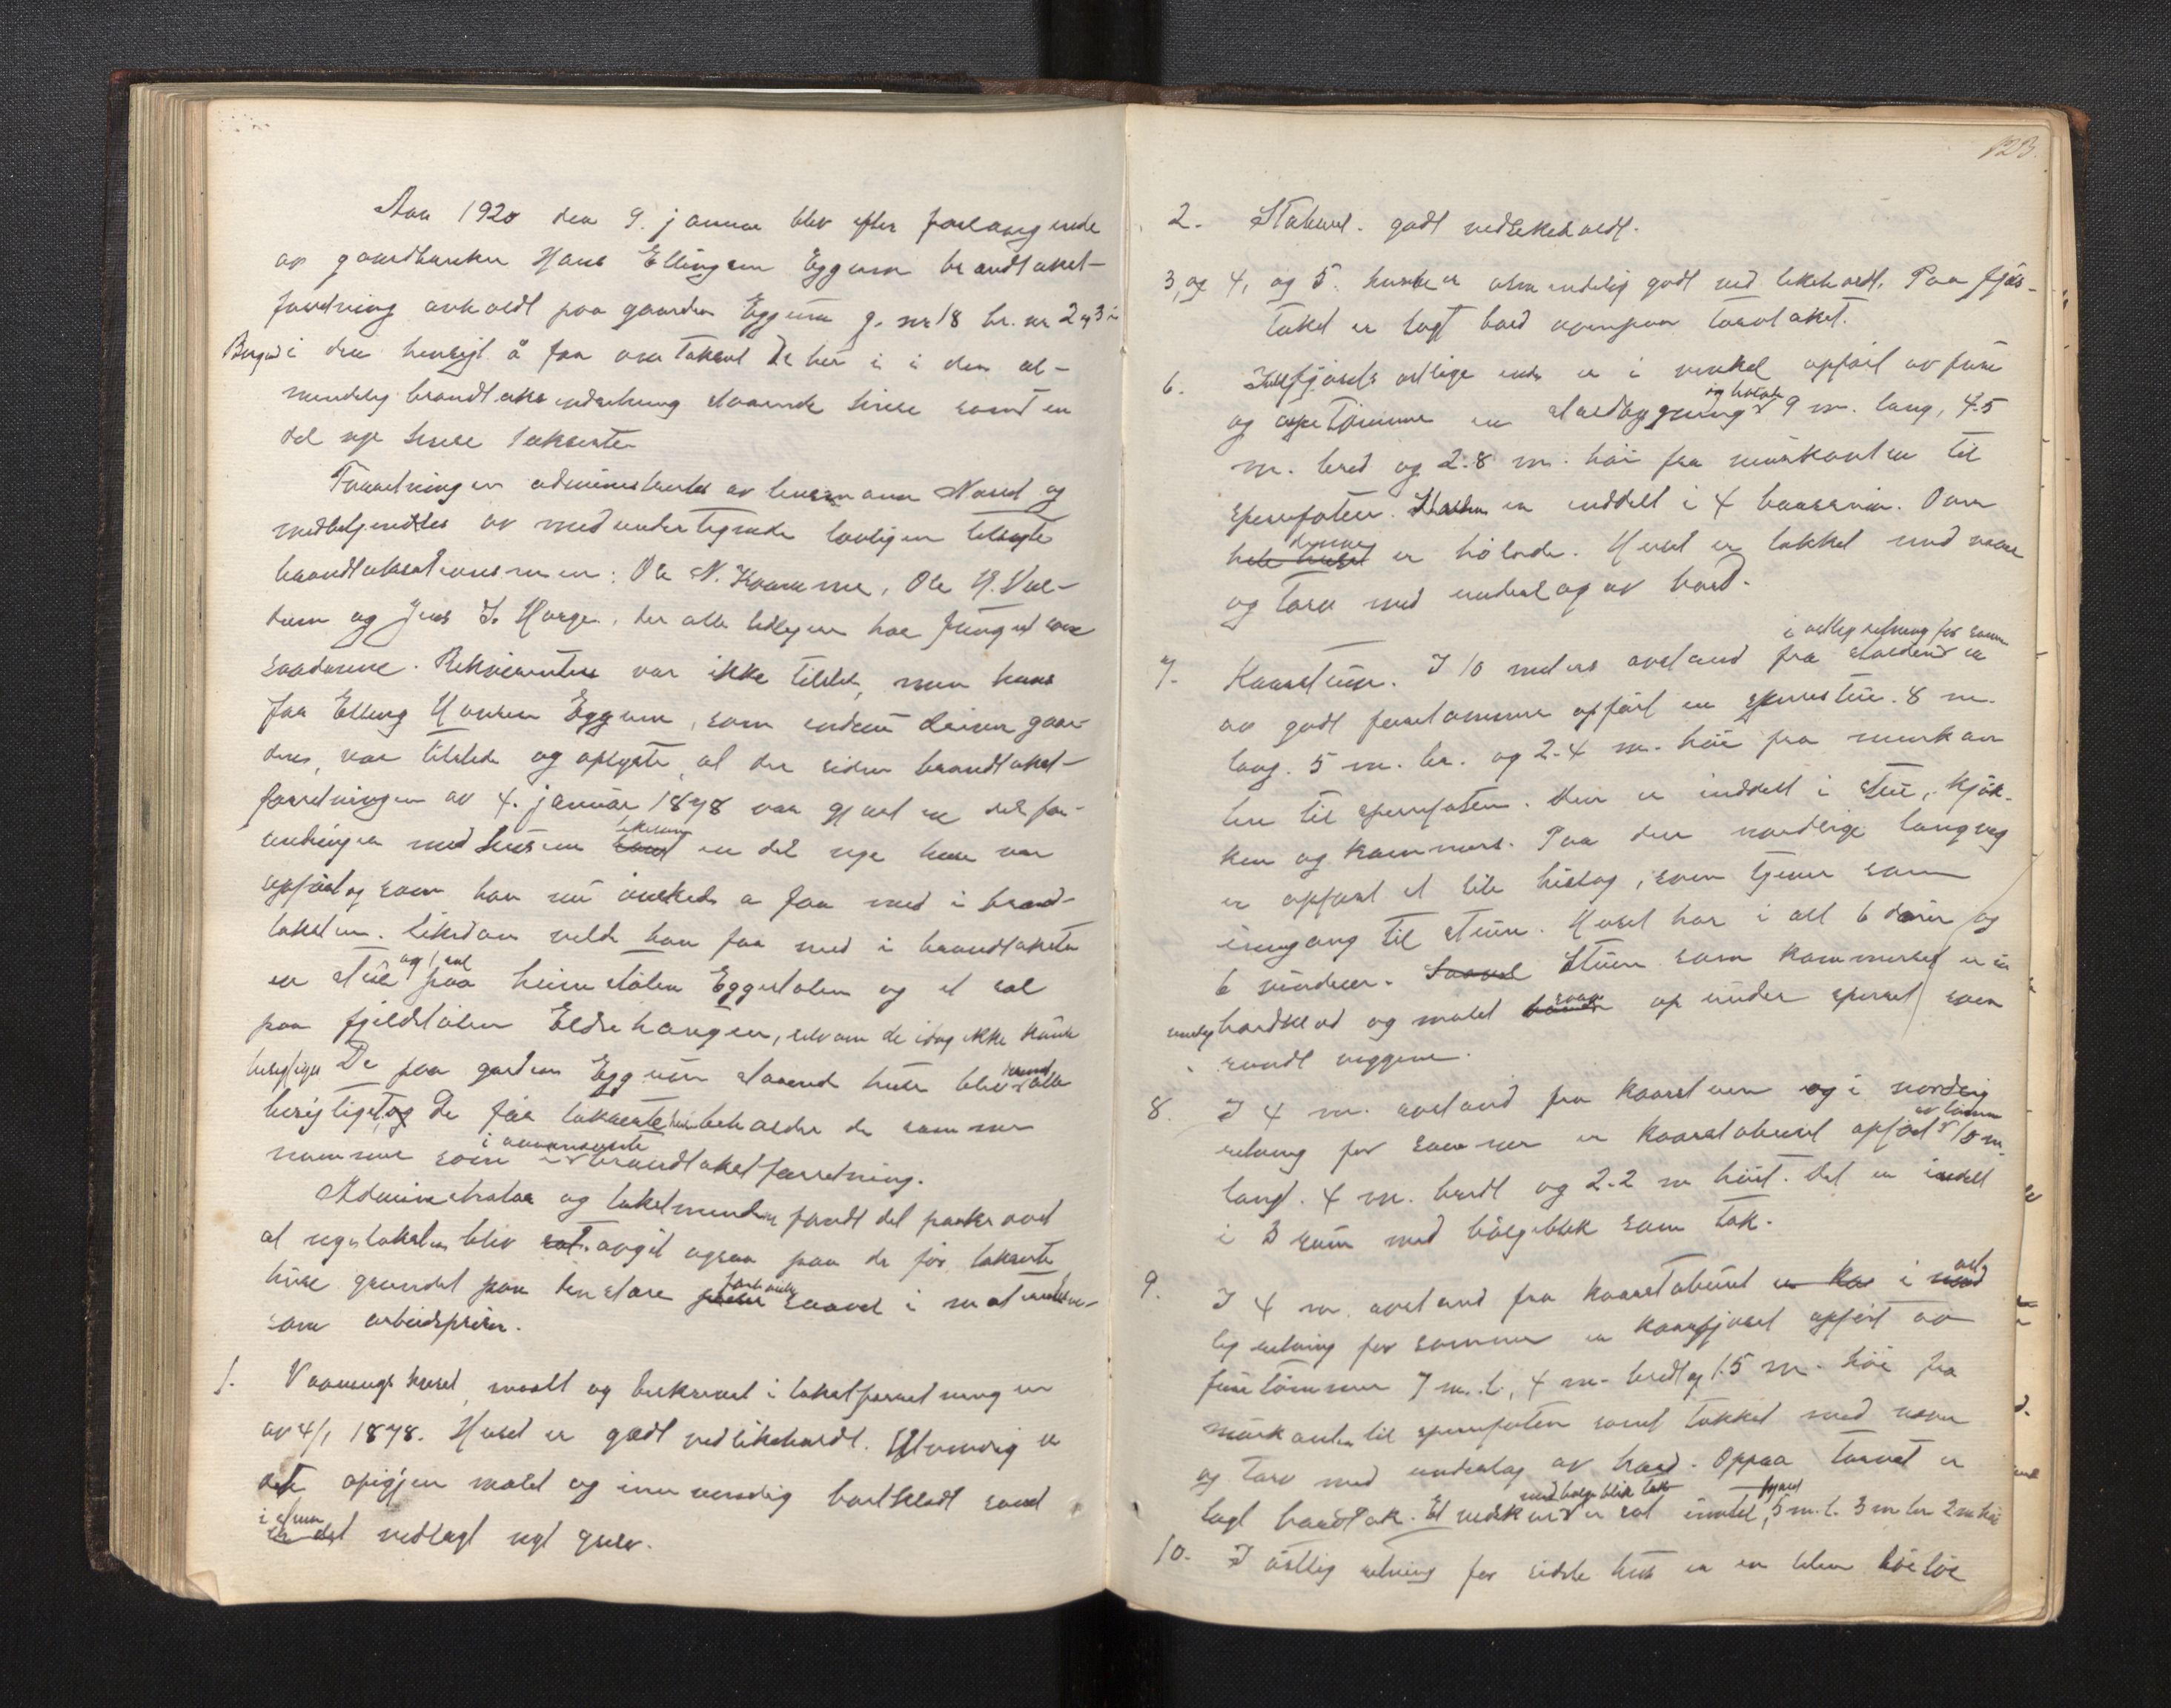 Aar 1920 den 9. januar blev efter forlangende
av gaardbruker Hans Ellingsen Eggum brandtakst-
forretning avholdt paa gaarden Eggum g. nr 18 br. nr 2 og 3 i
Borgund i den hensigt å faa omtaksert de her i i den al-
mindelig brandtakst indretning staaende huse samt en
del nye huse takserte
Forretningen administrertes av lensmann Nord og
medbetjentes av medundertegnede lovligen
brandtakstationsmenn: Ole N. Kvamme, Ole H.
og Jens J. Horge, der alle tidligere har fungert som
saadanne. Rekvirenten var ikke tilstede, men hans
far Elling Hansen Eggum, som endnu driver gaar-
den, var tilstede og oplyste, at der siden brandtakst-
forretningen av 4. januar 1878 var gjort en del for-
andringer med husene samt likesom en del nye huse var
opført og som han nu ønskede a faa med i brand-
taksten. Likedan vilde han faa med i brandtaksten
en stue og 1 sel paa heimstølen Eggestølen og et sel
paa fjeldstølen Eldrehaugen, selv om de idag ikke kunde
besigtiges De paa gaarden Eggum staaende huse blev alle
besigtiget, og De før takserte huse beholder de samme
nummer som i nævnte brandtakstforretning.
Administrator og takstmendene fandt det paakrævet
at nye taksten blev sat. avgit ogsaa paa de før takserte
huse grundet paa den store forhøielse saavel i materialer
som arbeidspriser.
1. Vaaningshuset, maalt og beskrevet i takstforretningen
av 4/1 1878. Huset er godt vedlikeholdt. Utvendig er
det opigjen malet og innvendig bordkledt samt
i stuen er det nedlagt nyt gulv.
123.
2. Stabuet. godt vedlikeholdt.
3, og 4, og 5. husene almindelig godt vedlikeholdt. Paa fjøs-
taket er lagt bord ovenpaa torvtaket.
6. I fjøsets østlige ende er i vinkel opført av furu
og ospetømmer en staldbygning og 9 m. lang, 4.5
m. bred og 2.8 m. høi fra murkanten til
sperrefoten. Stallen er inddelt i 4 baasrum. Over
hele huset denne er hølade. Huset er tækket med næver
og torv med underlag av bord.
7. Kaarstuen. I 10 meters avstand fra stalden i østlig retning for samme er
av godt furutømmer opført en sperrstue. 8 m.
lang. 5 m. br. og 2.4 m. høi fra murkan
ten til sperrefoten. Den er inddelt i stue, kjøk-
ken og kammers. Paa den nordlige langveg
er opført et lite bislag, som tjener som
inngang til stuen. Huset har i alt 6 dører og
6 vinduer. Saavel Stuen som kammerset er in
vendig bordklæd og malet saavel op under sperret som
rundt veggene.
8. I 4 m. avstand fra kaarstuen og i nordlig
retning for sammen er kaarstabuet opført av tømmer 10 m.
langt. 4 m. bredt og 2.2 m høit. Det er inddelt
i 3 rum med bølgeblik som tak.
9. I 4 m. avstand fra kaarstabuet er kaa i nord øst-
lig retning for samme er kaarfjøset opført av
furutømmer 7 m. l., 4 m. bredt og 1.5 m. høi fra
murkanten til sperrefoten samt tækket med næver
og torv med underlag av bord. Oppaa torvet er
lagt bordtak. Et vedskur med bølgeblik tak er sat inntil fjøset, 5 m. l. 3 m br 2 m høi
10. I østlig retning for sidste hus er en liten høiløe